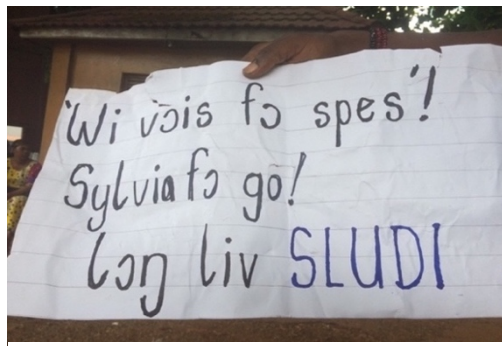 'Wi vɔis fɔ spes'!
Sylvia fɔ go!
Lɔŋ liv SLUDI